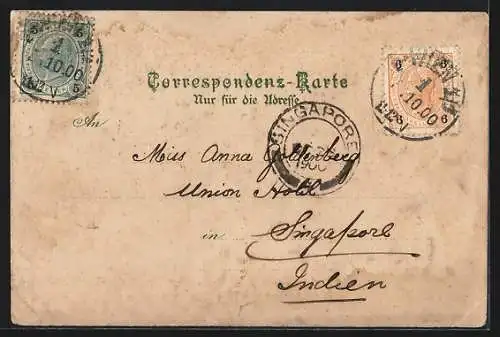 Correspondenz-Karte
Nur für die Adresse
An
Miss Anna Goldenberg
Union Hotel
in Singapore
Indien
SINGAPORE
1900
WIEN
1
10.00
1
10.00
5 5
5
6
6 6